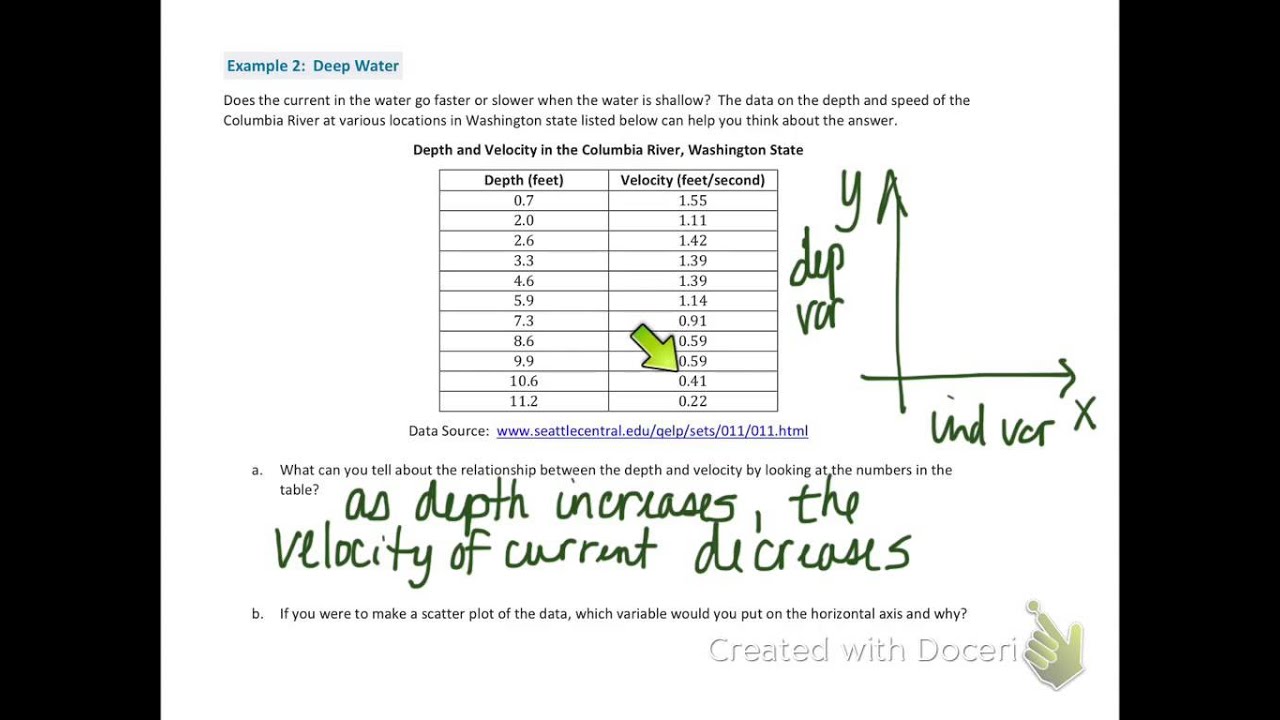 Example 2: Deep Water
Does the current in the water go faster or slower when the water is shallow? The data on the depth and speed of the
Columbia River at various locations in Washington state listed below can help you think about the answer.
Depth and Velocity in the Columbia River, Washington State
Depth (feet) Velocity (feet/second)
0.7 1.55
2.0 1.11
2.6 1.42
3.3 1.39
4.6 1.39
5.9 1.14
7.3 0.91
8.6 0.59
9.9 0.59
10.6 0.41
11.2 0.22
y
dep
var
ind var x
Data Source: www.seattlecentral.edu/qelp/sets/011/011.html
a. What can you tell about the relationship between the depth and velocity by looking at the numbers in the
table?
as depth increases, the
velocity of current decreases
b. If you were to make a scatter plot of the data, which variable would you put on the horizontal axis and why?
Created with Doceri